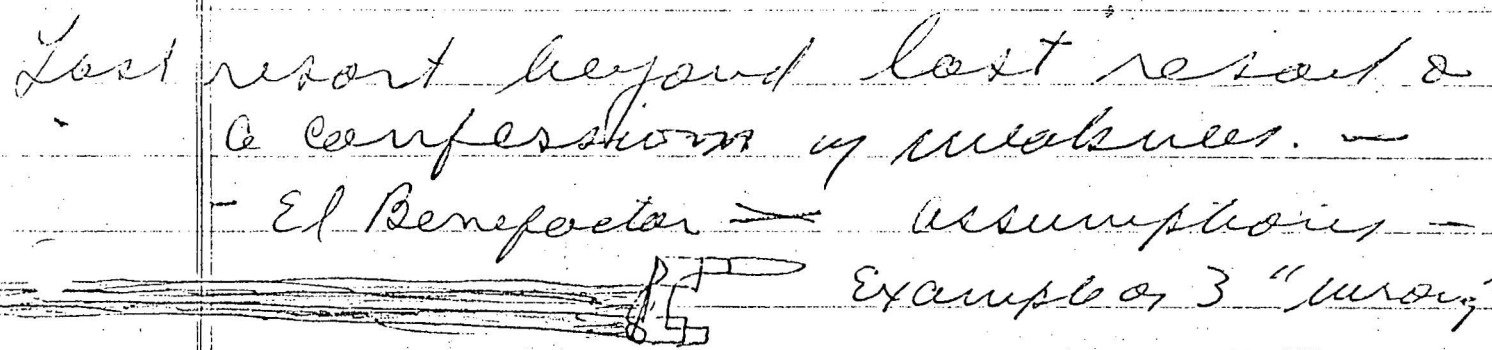 Last resort beyond last resort &
a confession of weakness. —
- El Benefactor — assumptions -
Example of 3 "wrong